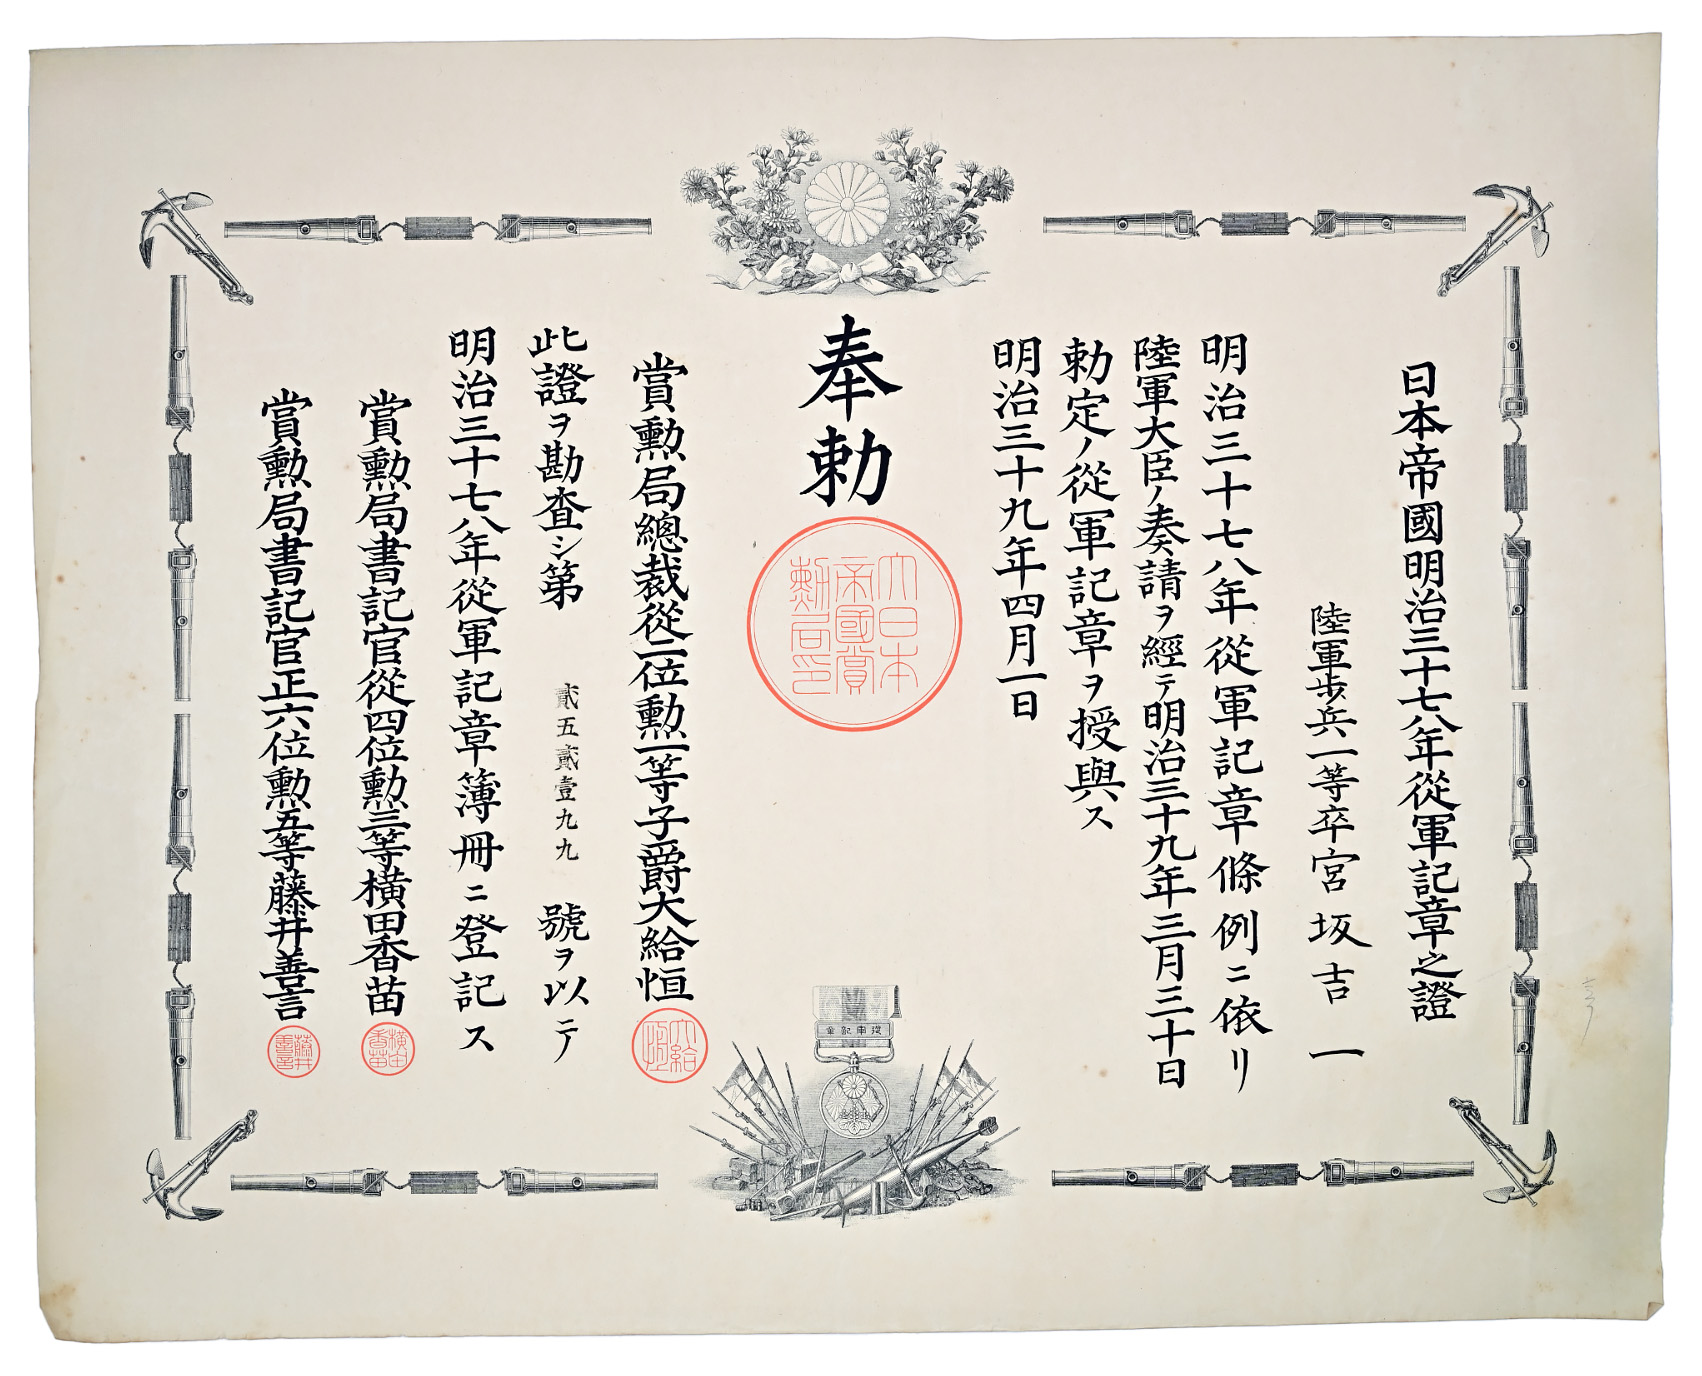 日本帝國明治三十七八年從軍記章之證
陸軍歩兵一等卒宮坂吉一
明治三十七八年從軍記章條例ニ依リ
陸軍大臣ノ奏請ヲ經テ明治三十九年三月三十日
勅定ノ從軍記章ヲ授與ス
明治三十九年四月一日
奉勅
大日本
帝國賞
勲局印
賞勲局總裁從二位勲一等子爵大給恒
大給
恒
此證ヲ勘査シ第貳五貳壹九九號ヲ以テ
明治三十七八年從軍記章簿冊ニ登記ス
賞勲局書記官從四位勲三等横田香苗
横田
香苗
賞勲局書記官正六位勲五等藤井善言
藤井
善言
從軍記章